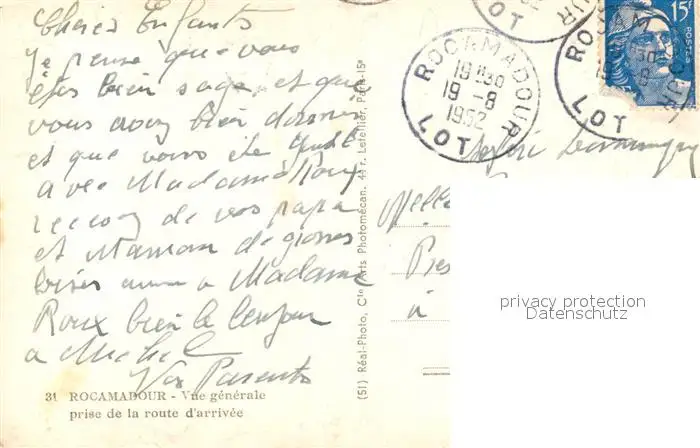 Cheres Enfants
Je pense que vous
êtes bien sage et que
vous avez bien dormi
et que vous ete
avec Madame Roux
recevez de vos papa
et Maman de grosses
bises a Madame
Roux bien le bonjour
a Michel
Vos Parents
31 ROCAMADOUR - Vue générale
prise de la route d'arrivée
(51) Réal-Photo, Cie des Arts Photomécan. 44 r. Letellier, Paris-15e
ROCAMADOUR
19 H30
19-8
1952
LOT
LOT
ROCAMADOUR
LOT
15F
POSTES
Melle
Pres
à
privacy protection
Datenschutz